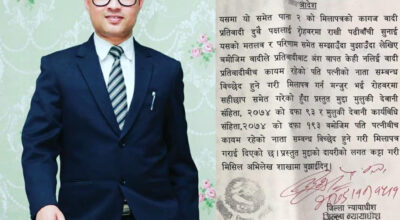 आदेश
यसमा यो समेत पाना २ को मिलापत्रको कागज वादी
प्रतिवादी दुवै पक्षलाई रोहवरमा राखी पढीबाँची सुनाई
यसको मतलब र परिणाम समेत सम्झाउँदा बुझाउँदा लेखिए
बमोजिम वादीले प्रतिवादीबाट अंश बापत केही नलिई वादी
प्रतिवादीबीच कायम रहेको पति पत्नीको नाता सम्बन्ध
बिच्छेद हुने गरी मिलापत्र गर्न मन्जुर भई रोहवरमा
सहीछाप समेत गरेको हुँदा प्रस्तुत मुद्दा मुलुकी देवानी
संहिता, २०७४ को दफा ९३ र मुलुकी देवानी कार्यविधि
संहिता,२०७४ को दफा १९३ बमोजिम पति पत्नीबीच
कायम रहेको नाता सम्बन्ध बिच्छेद हुने गरी मिलापत्र
गराई दिएको छ। प्रस्तुत मुद्दाको दायरीको लगत कट्टा गरी
मिसिल अभिलेख शाखामा बुझाईदिनू।
जिल्ला न्यायाधीश